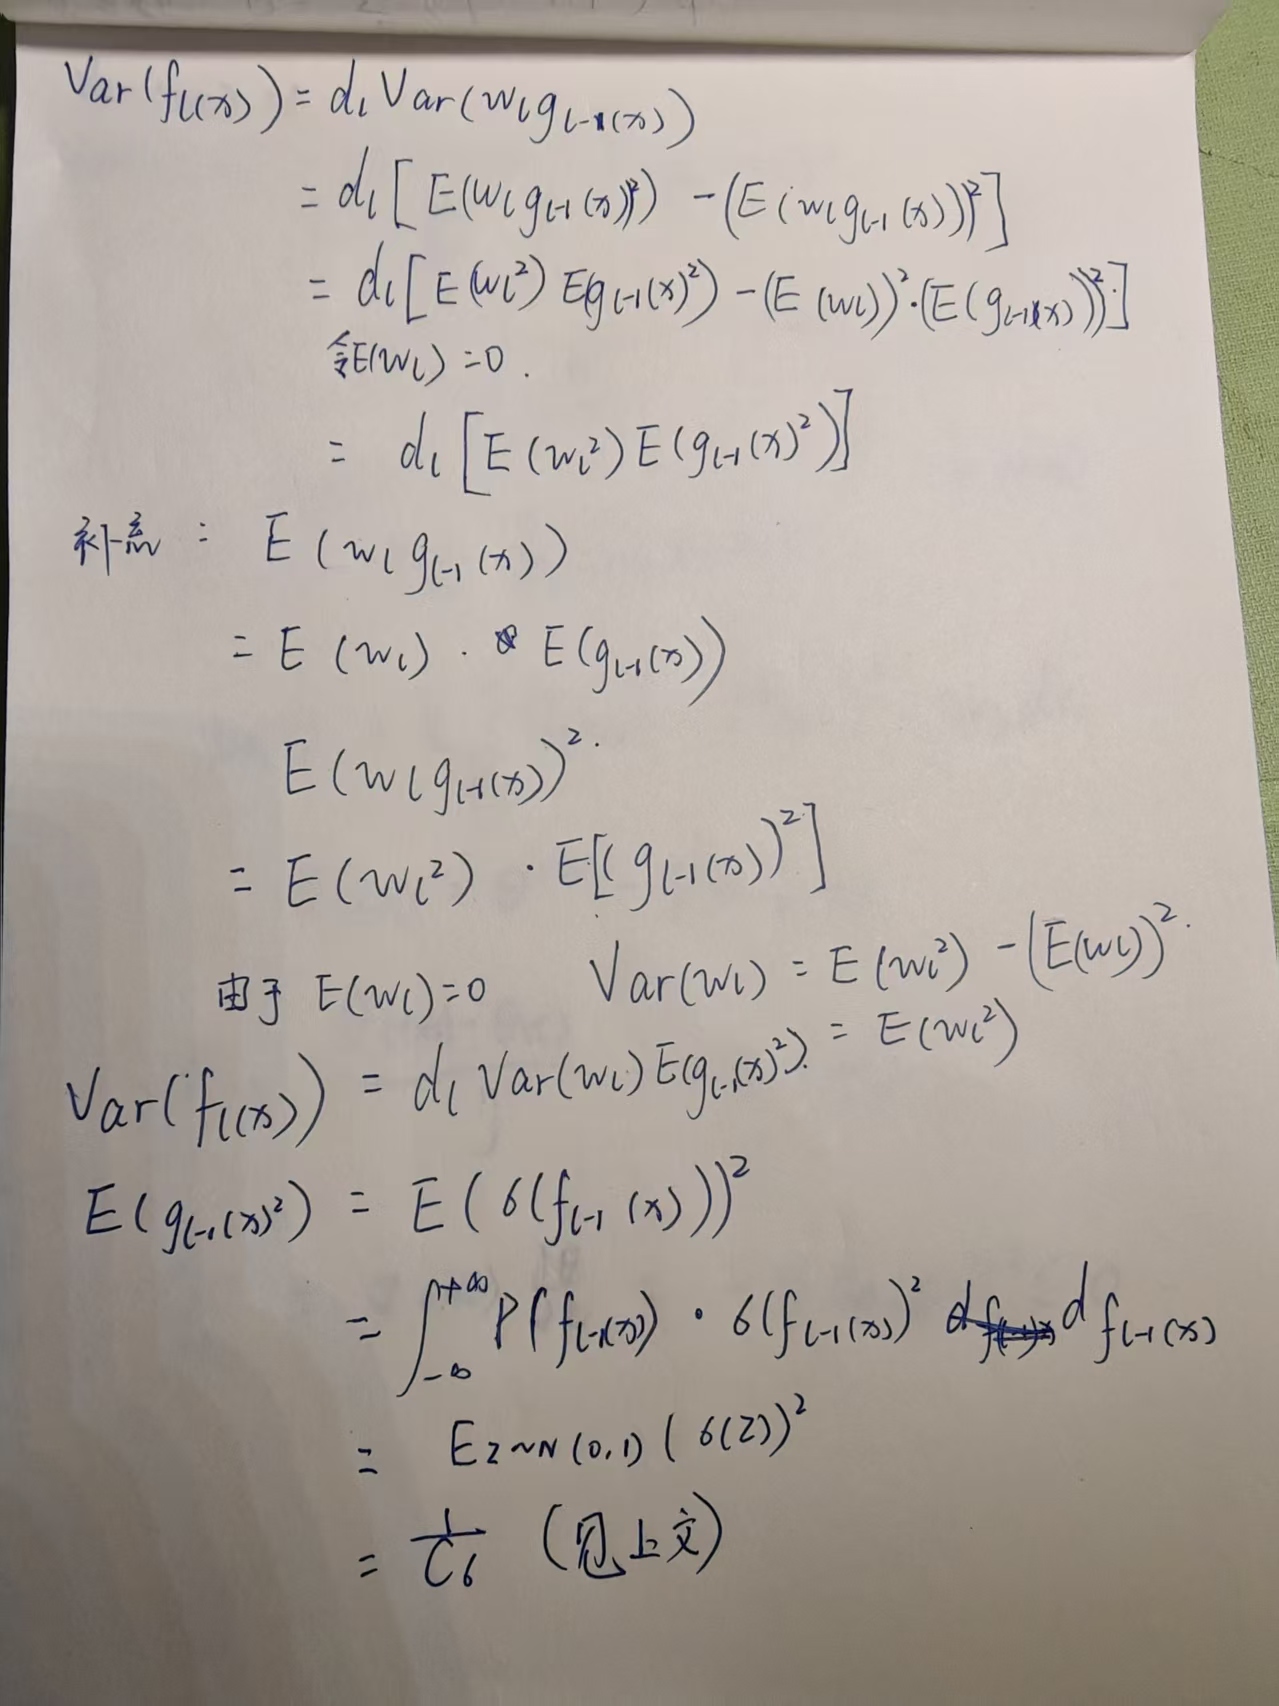 Var(f_l(x)) = d_l Var(w_l g_{l-1}(x))
= d_l [E(w_l g_{l-1}(x))²) - (E(w_l g_{l-1}(x)))²]
= d_l [E(w_l²) E(g_{l-1}(x)²) - (E(w_l))²·(E(g_{l-1}(x)))²]
令E(w_l) = 0.
= d_l [E(w_l²) E(g_{l-1}(x)²)]
补充: E(w_l g_{l-1}(x))
= E(w_l) · E(g_{l-1}(x))
E(w_l g_{l-1}(x))².
= E(w_l²) · E[(g_{l-1}(x))²]
由于 E(w_l)=0 Var(w_l) = E(w_l²) - (E(w_l))².
= E(w_l²)
Var(f_l(x)) = d_l Var(w_l) E(g_{l-1}(x)²).
E(g_{l-1}(x)²) = E(σ(f_{l-1}(x)))²
= ∫_{-∞}^{+∞} P(f_{l-1}(x)) · σ(f_{l-1}(x))² d f_{l-1}(x)
= E_{z~N(0,1)} (σ(z))²
= 1/C_σ (见上文)